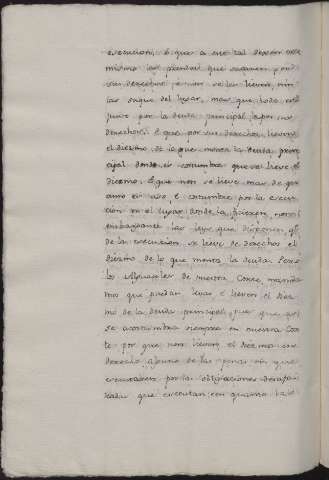 execucion, é que a este tal dexen
mismo las prendas que sacaren por
sus derechos, é non se las lieven, nin
las saque del lugar, mas que todo esté
junto por la deuda principal, é por sus
derechos: é que por sus derechos, lieven
el diezmo de lo que monta la deuda prin
cipal donde es costumbre que se lieve el
diezmo, é que non se lieve mas de quo
amo es uso, é costumbre por la execu
cion en el lugar donde la ficieren, non
embargante las leyes que disponen, q.
de la execucion se lieve de derechos el
diezmo de lo que monta la deuda. Pero
los Alguaciles de nuestra Corte, manda
mos que puedan levar é lieven el diez
mo de la deuda principal, que asi
se acostumbra siempre en nuestra Cor
te por que non lieven el diezmo
derecho alguno de las penas en que
executaren por las obligaciones
que executan en quanto